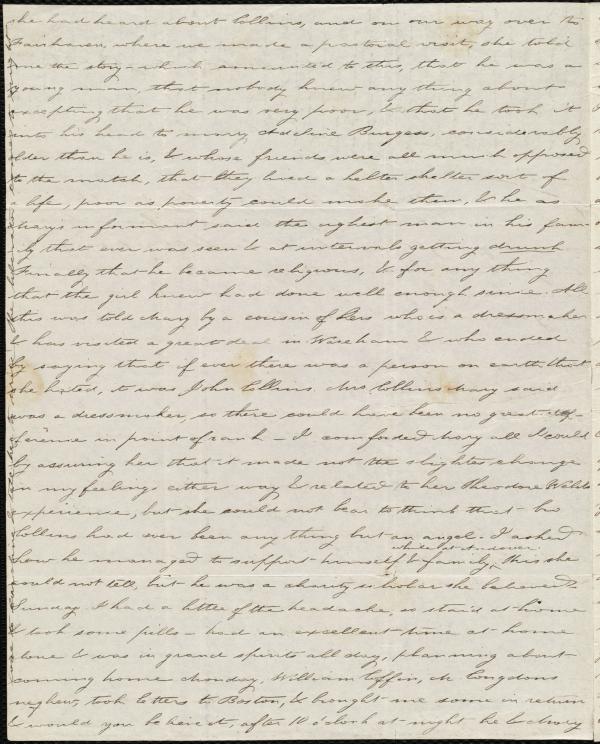 she had heard about Collins, and on our way over to
Fairhaven, where we made a pastoral visit, she told
me the story - which amounted to this, that he was a
young man, that nobody knew any thing about
excepting that he was very poor, & that he took it
into his head to marry Adeline Burgess, considerably
older than he is, & whose friends were all much opposed
to the match, that they lived a helter skelter sort of
a life, poor as poverty could make them, & he as
Mary's informant said the ugliest man in his fam-
ily that ever was seen & at intervals getting drunk
Finally that he became religious, & for any thing
that the girl knew had done well enough since. All
this was told Mary by a cousin of hers who is a dressmaker
& has visited a great deal in Wareham & who ended
by saying that if ever there was a person on earth that
she hated, it was John Collins. Mrs Collins Mary said
was a dressmaker, so there could have been no great dif-
ference in point of rank - I comforded Mary all I could
by assuring her that it made not the slightes change
in my feelings either way & related to her Theodore Welds
experience, but she could not bear to think that bro
Collins had ever been any thing but an angel. I asked
how he managed to support himself & family while at Andover. this she
could not tell, but he was a charity scholar she believed
Sunday I had a little of the headache, so staid at home
& took some pills - had an excellent time at home
alone & was in grand spirits all day, planning about
coming home Monday. William Coffin, Mr Congdons
nephew, took letters to Boston, & brought me some in return
& would you believe it, after 10 o'clock at night he & Mary